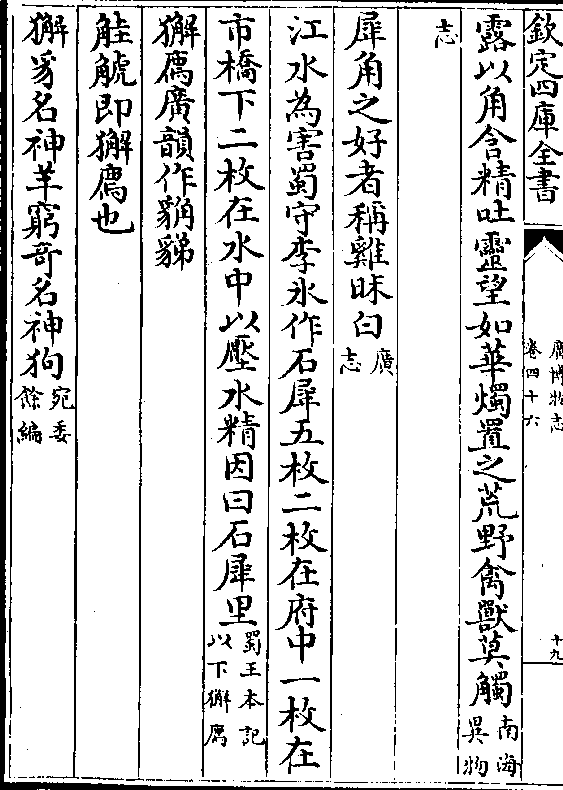 欽定四庫全書
廣博物志
卷四十六
十九
露以角含精吐靈望如華燭置之荒野禽獸莫觸南海異物
志
犀角之好者稱雞昧白廣志
江水為害蜀守李氷作石犀五枚二枚在府中一枚在
市橋下二枚在水中以壓水精因曰石犀里蜀王本記以下獬廌
獬廌廣韻作貈䝱
觟䚦即獬廌也
獬豸名神羊窮奇名神狗宛委餘編